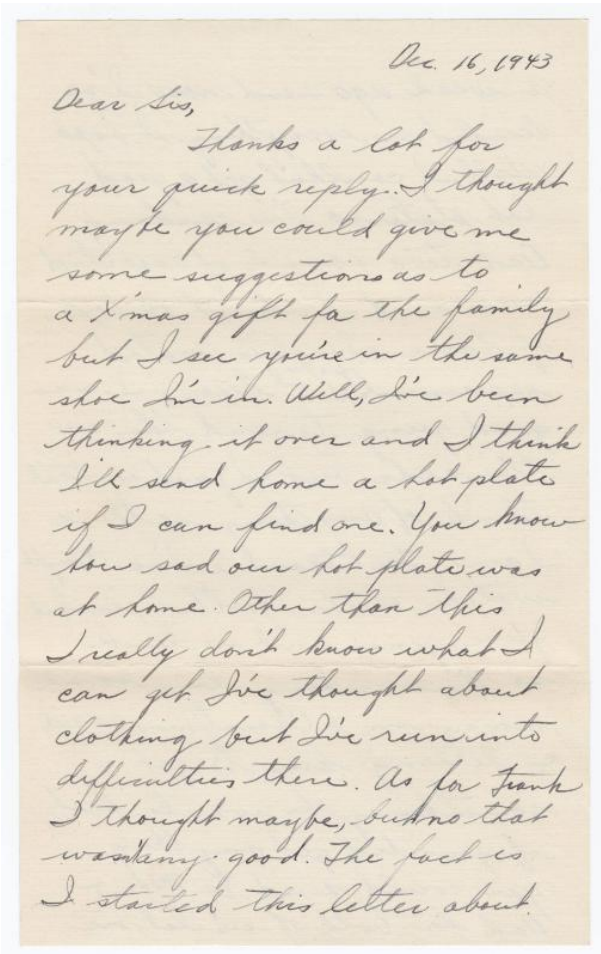 Dec. 16, 1943
Dear Sis,
Thanks a lot for
your quick reply. I thought
maybe you could give me
some suggestions as to
a X'mas gift fo the family
but I see you're in the same
shoe I'm in. Well, I've been
thinking it over and I think
I'll send home a hot plate
if I can find one. You know
how sad our hot plate was
at home. Other than this
I really don't know what I
can get. I've thought about
clothing but I've run into
difficulties there. As for Frank
I thought maybe, but no that
wasn't any good. The fact is
I started this letter about